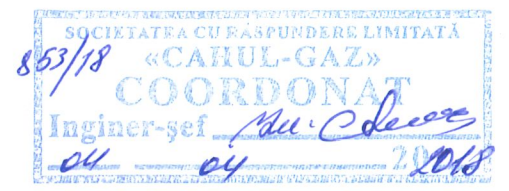 SOCIETATEA CU RĂSPUNDERE LIMITATĂ
853/18
«CAHUL-GAZ»
COORDONAT
Inginer-șef
04 04 2018